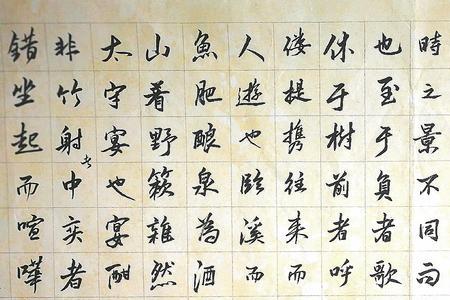 時之景不同而
也至于負者歌
休于樹前者呼
僂提携往来而
人遊也臨溪而
魚肥釀泉為酒
山肴野蔌雜然
太守宴也宴酣
非竹射者中奕者
錯坐起而喧嘩